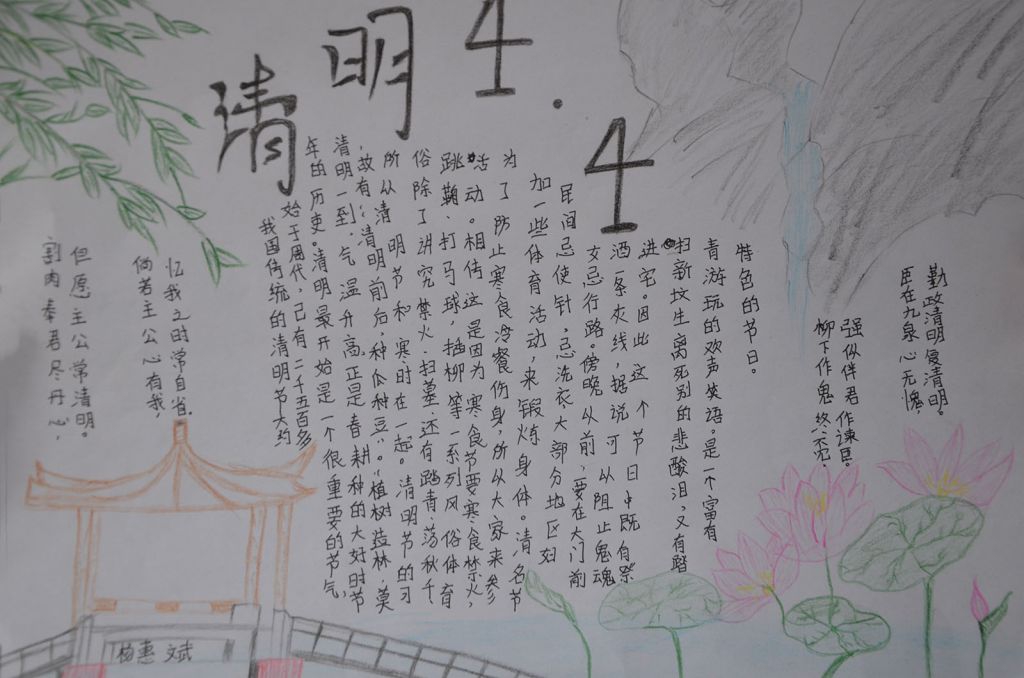 清明
4.4
割肉奉君尽丹心,
但愿主公常清明。
倘若主公心有我,
忆我之时常自省.
我国传统的清明节大约
始于周代,己有二千五百多
年的历史。清明最开始是一个很重要的节气,
清明一到,气温升高,正是春耕种的大好时节
,故有:“清明前后,种瓜种豆。”“植树造林,莫
所从清明节和寒时在一起。清明节的习
俗除了讲究禁火、扫墓,还有踏青、荡秋千
跳鞠、打马球,插柳等一系列风俗体育
活动。相传这是因为寒食节要寒食禁火,
为了防止寒食冷餐伤身,所从大家来参
加一些体育活动,来锻炼身体。清名节
民间忌使针,忌洗衣,大部分地区妇
女忌行路。傍晚从前,要在大门前
洒一条灰线,据说可从阻止鬼魂
进宅。因此这个节日中既有祭
扫新坟生离死别的悲酸泪,又有踏
青游玩的欢声笑语。是一个富有
特色的节日。
柳下作鬼终不见,
强似伴君作谏臣。
臣在九泉心无愧,
勤政清明复清明。
杨惠斌